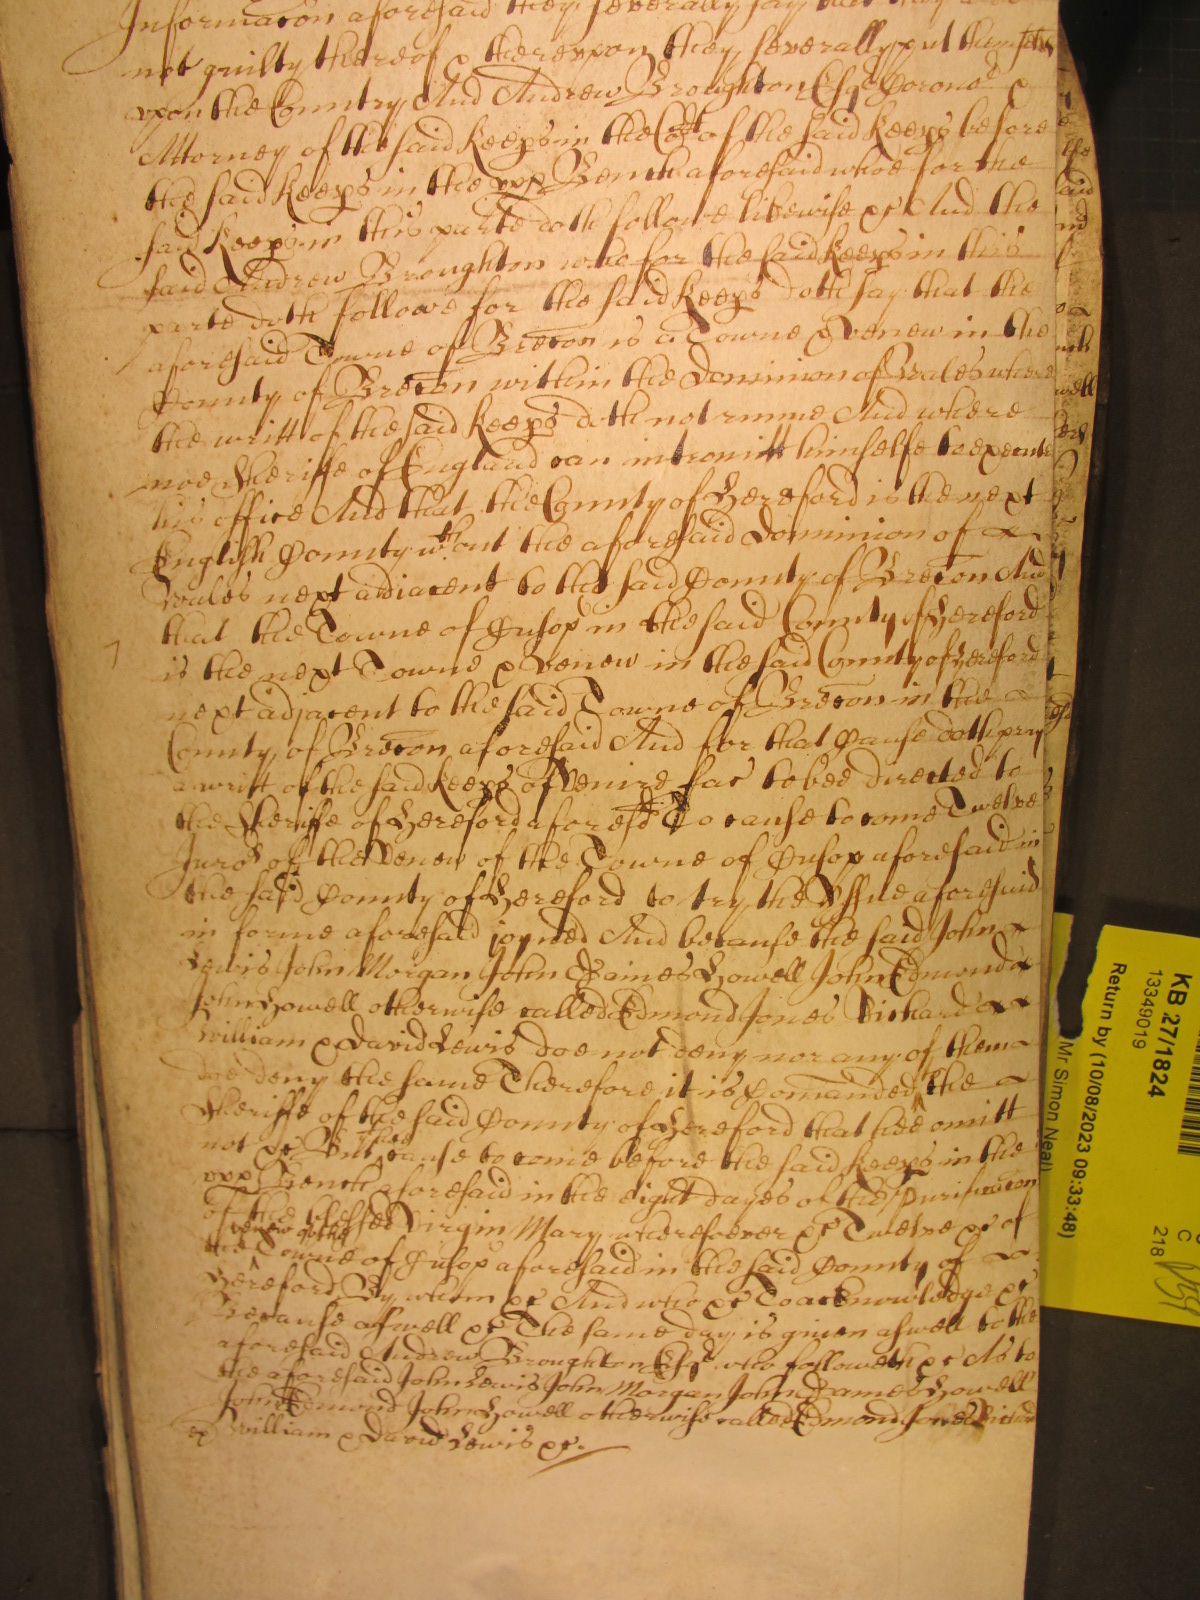 Informacon aforesaid they severally say that they are
not guilty thereof & therevpon they severally put themselves
vpon the Country And Andrew Broughton Esqr Corono &
Attorney of the said Keeps in the Cort of the said Keeps before
the said Keeps in the vpp Bench aforesaid whoe for the
said Keeps in this parte doth followe likewise &c And the
said Andrew Broughton who for the said Keeps in this
parte doth followe for the said Keeps doth say that the
aforesaid Towne of Brecon is a Towne & Venew in the
County of Brecon within the Dominion of Wales where
the writt of the said Keeps doth not runne And where
noe Sheriffe of England can intromitt himselfe to execute
his office And that the County of Hereford is the next
English County wthout the aforesaid Dominion of
Wales next adiacent to the said County of Brecon And
that the Towne of Cusop in the said County of Hereford
is the next Towne & Venew in the said County of Hereford
next adjacent to the said Towne of Brecon in the
County of Brecon aforesaid And for that Cause doth pray
a writt of the said Keeps of Venire fac to bee directed to
the Sheriffe of Hereford aforesd To cause to come Twelve
Juros of the Venew of the Towne of Cusop aforesaid in
the said County of Hereford to try the Issue aforesaid
in forme aforesaid joyned And because the said John
Lewis John Morgan John James Howell John Edmond
John Howell otherwise called Edmond Jones Richard
William & David Lewis doe not deny nor any of them
doe deny the same Therefore it is Comanded the
Sheriffe of the said County of Hereford that hee omitt
not &c But cause to come before the said Keeps in the
vpp Bench aforesaid in the eight dayes of the Purificacon
of the blessed Virgin Mary wheresoever &c Twelve &c of
the venew of the Towne of Cusop aforesaid in the said County of
Hereford By whom &c And who &c To acknowledge &c
Because aswell &c The same day is given aswell to the
aforesaid Andrew Broughton Esqr who followeth &c As to
the aforesaid John Lewis John Morgan John James Howell
John Edmond John Howell otherwise called Edmond Jones Richard
William & David Lewis &c
KB 27/1824
13349019
Return by (10/08/2023 09:33:48)
Mr Simon Neal
C
218